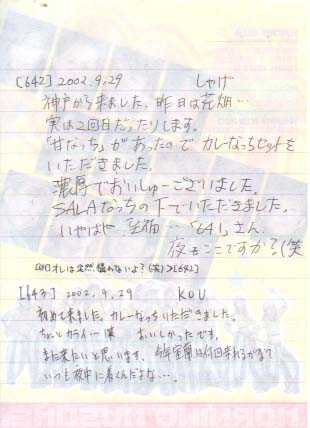 [642] 2002.9.29 しゃげ
神戸から来ました。昨日は花畑…
実は2回目だったりします。
「甘なっち」があったので カレーなっちセットを
いただきました。
濃厚でおいしゅーございました。
SALAなっちの下でいただきました。
いやはや 至福…「641」さん
夜もここですか？(笑
オレは全然、構わないよ？(笑) >[642]
[643] 2002.9.29 KOU
初めて来ました。カレーなっちいただきました。
ちょいとカライ…僕 おいしかったです。
また来たいと思います。今年室蘭は何回来れるかな？
いつも夜中に着くんだよな…。
MORNING MUSUME